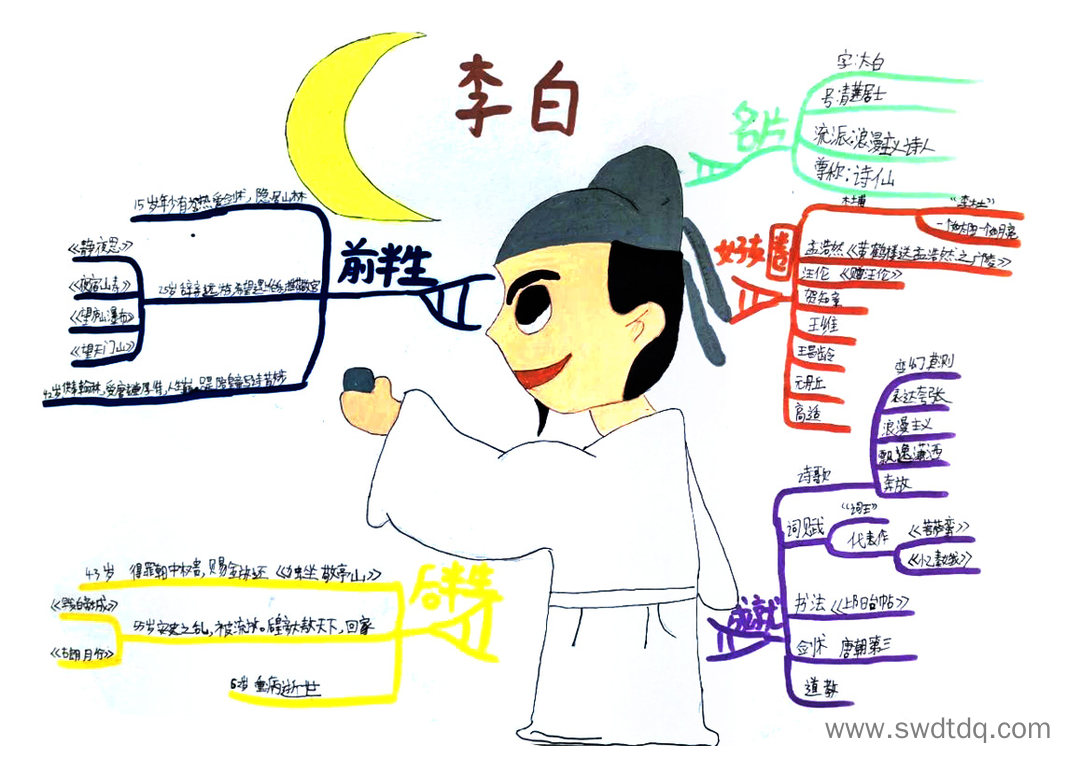 李白
名片
字:太白
号:青莲居士
流派:浪漫主义诗人
尊称:诗仙
好友圈
杜甫
"李杜"
孟浩然《黄鹤楼送孟浩然之广陵》
汪伦《赠汪伦》
贺知章
王维
王昌龄
元丹丘
高适
成就
诗歌
变幻莫测
表达夸张
浪漫主义
飘逸潇洒
奔放
词赋
"词王"
代表作
《菩萨蛮》
《忆秦娥》
书法《上阳台帖》
剑术 唐朝第三
道教
前半生
15岁年少有为热爱剑术,隐居山林
25岁辞亲远游
《静夜思》
《夜宿山寺》
《望庐山瀑布》
《望天门山》
42岁供奉翰林,
后半生
43岁 得罪朝中权贵,赐金放还《独坐敬亭山》
55岁安史之乱,被流放。后皇帝大赦天下,回家
《早发白帝城》
62岁重病逝世
www.swdtdq.com